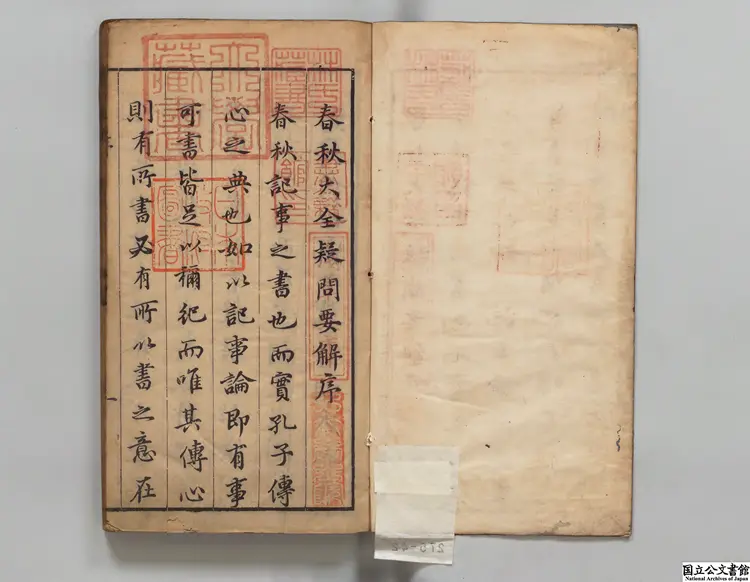 春秋大全疑問要解序
春秋記事之書也而實孔子傳
心之典也如以記事論即有事
可書皆足以稱紀而唯其傳心
則有所書又有所以書之意在
国立公文書館
National Archives of Japan